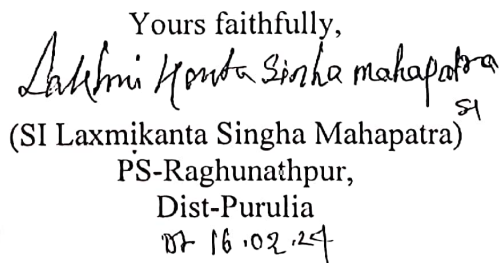 Yours faithfully,
Lakhmi Konta Sinha mahapatra
SI
(SI Laxmikanta Singha Mahapatra)
PS-Raghunathpur,
Dist-Purulia
Dt 16.02.24